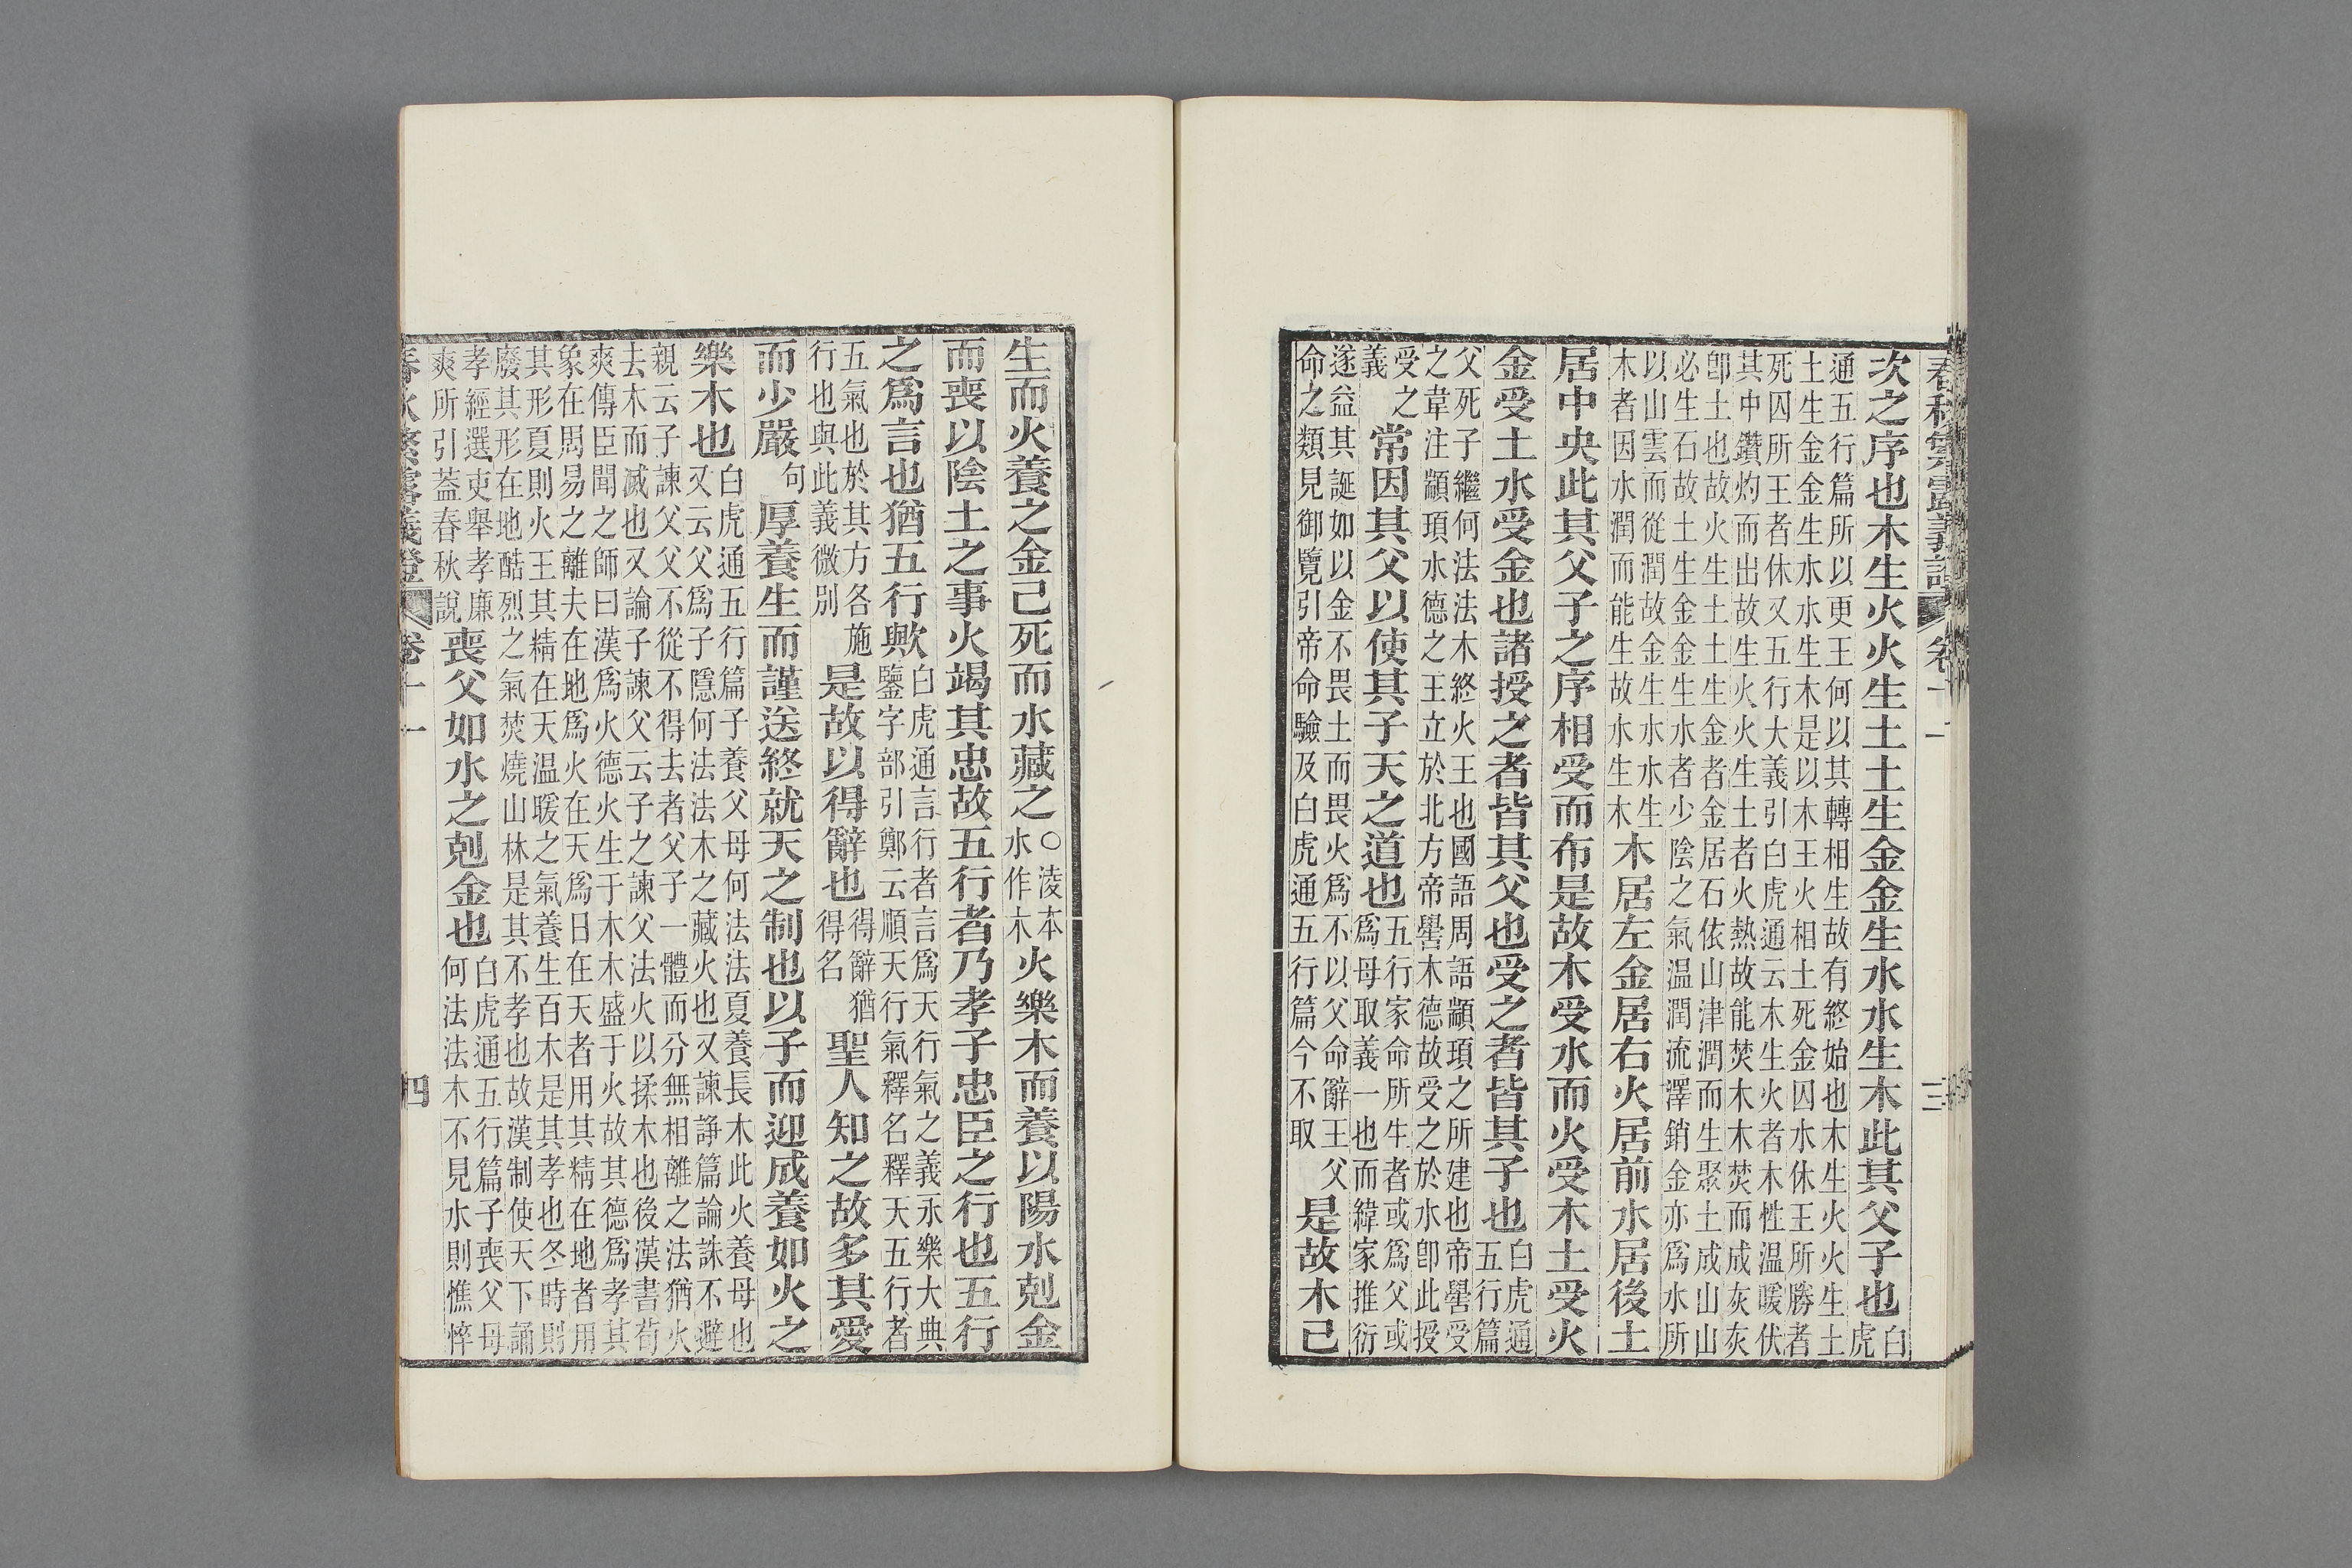 春秋繁露義證 卷十一 三
次之序也木生火火生土土生金金生水水生木此其父子也白
虎
通五行篇所以更王何以其轉相生故有終始也木生火火生土
土生金金生水水生木是以木王火相土死金囚水休王所勝者
死囚所王者休又五行大義引白虎通云木生火者木性温暖伏
其中鑽灼而出故生火火生土者火熱故能焚木木焚而成灰灰
卽土也故火生土土生金者金居石依山津潤而生聚土成山山
必生石故土生金金生水者少陰之氣温潤流澤銷金亦爲水所
以山雲而從潤故金生水水生
木者因水潤而能生故水生木
木居左金居右火居前水居後土
居中央此其父子之序相受而布是故木受水而火受木土受火
金受土水受金也諸授之者皆其父也受之者皆其子也白虎通
五行篇
父死子繼何法法木終火王也國語周語顓頊之所建也帝嚳受
之韋注顓頊水德之王立於北方帝嚳木德故受之於水卽此授
受之
義
常因其父以使其子天之道也五行家命所生者或爲父或
爲母取義一也而緯家推衍
遂益其誕如以金不畏土而畏火爲不以父命辭王父
命之類見御覽引帝命驗及白虎通五行篇今不取
是故木已
生而火養之金已死而水藏之○淩本
水作木
火樂木而養以陽水剋金
而喪以陰土之事火竭其忠故五行者乃孝子忠臣之行也五行
之爲言也猶五行歟白虎通言行者言爲天行氣之義永樂大典
鑒字部引鄭云順天行氣釋名釋天五行者
五氣也於其方各施
行也與此義微別
是故以得辭也得辭猶
得名
聖人知之故多其愛
而少嚴句厚養生而謹送終就天之制也以子而迎成養如火之
樂木也白虎通五行篇子養父母何法法夏養長木此火養母也
又云父爲子隱何法法木之藏火也又諫諍篇論誅不避
親云子諫父父不從不得去者父子一體而分無相離之法猶火
去木而滅也又論子諫父云子之諫父法火以揉木也後漢書荀
爽傳臣聞之師曰漢爲火德火生于木木盛于火故其德爲孝其
象在周易之離夫在地爲火在天爲日在天者用其精在地者用
其形夏則火王其精在天温暖之氣養生百木是其孝也冬時則
廢其形在地酷烈之氣焚燒山林是其不孝也故漢制使天下誦
孝經選吏舉孝廉
爽所引葢春秋說
喪父如水之剋金也白虎通五行篇子喪父母
何法法木不見水則憔悴
春秋繁露義證 卷十一 四